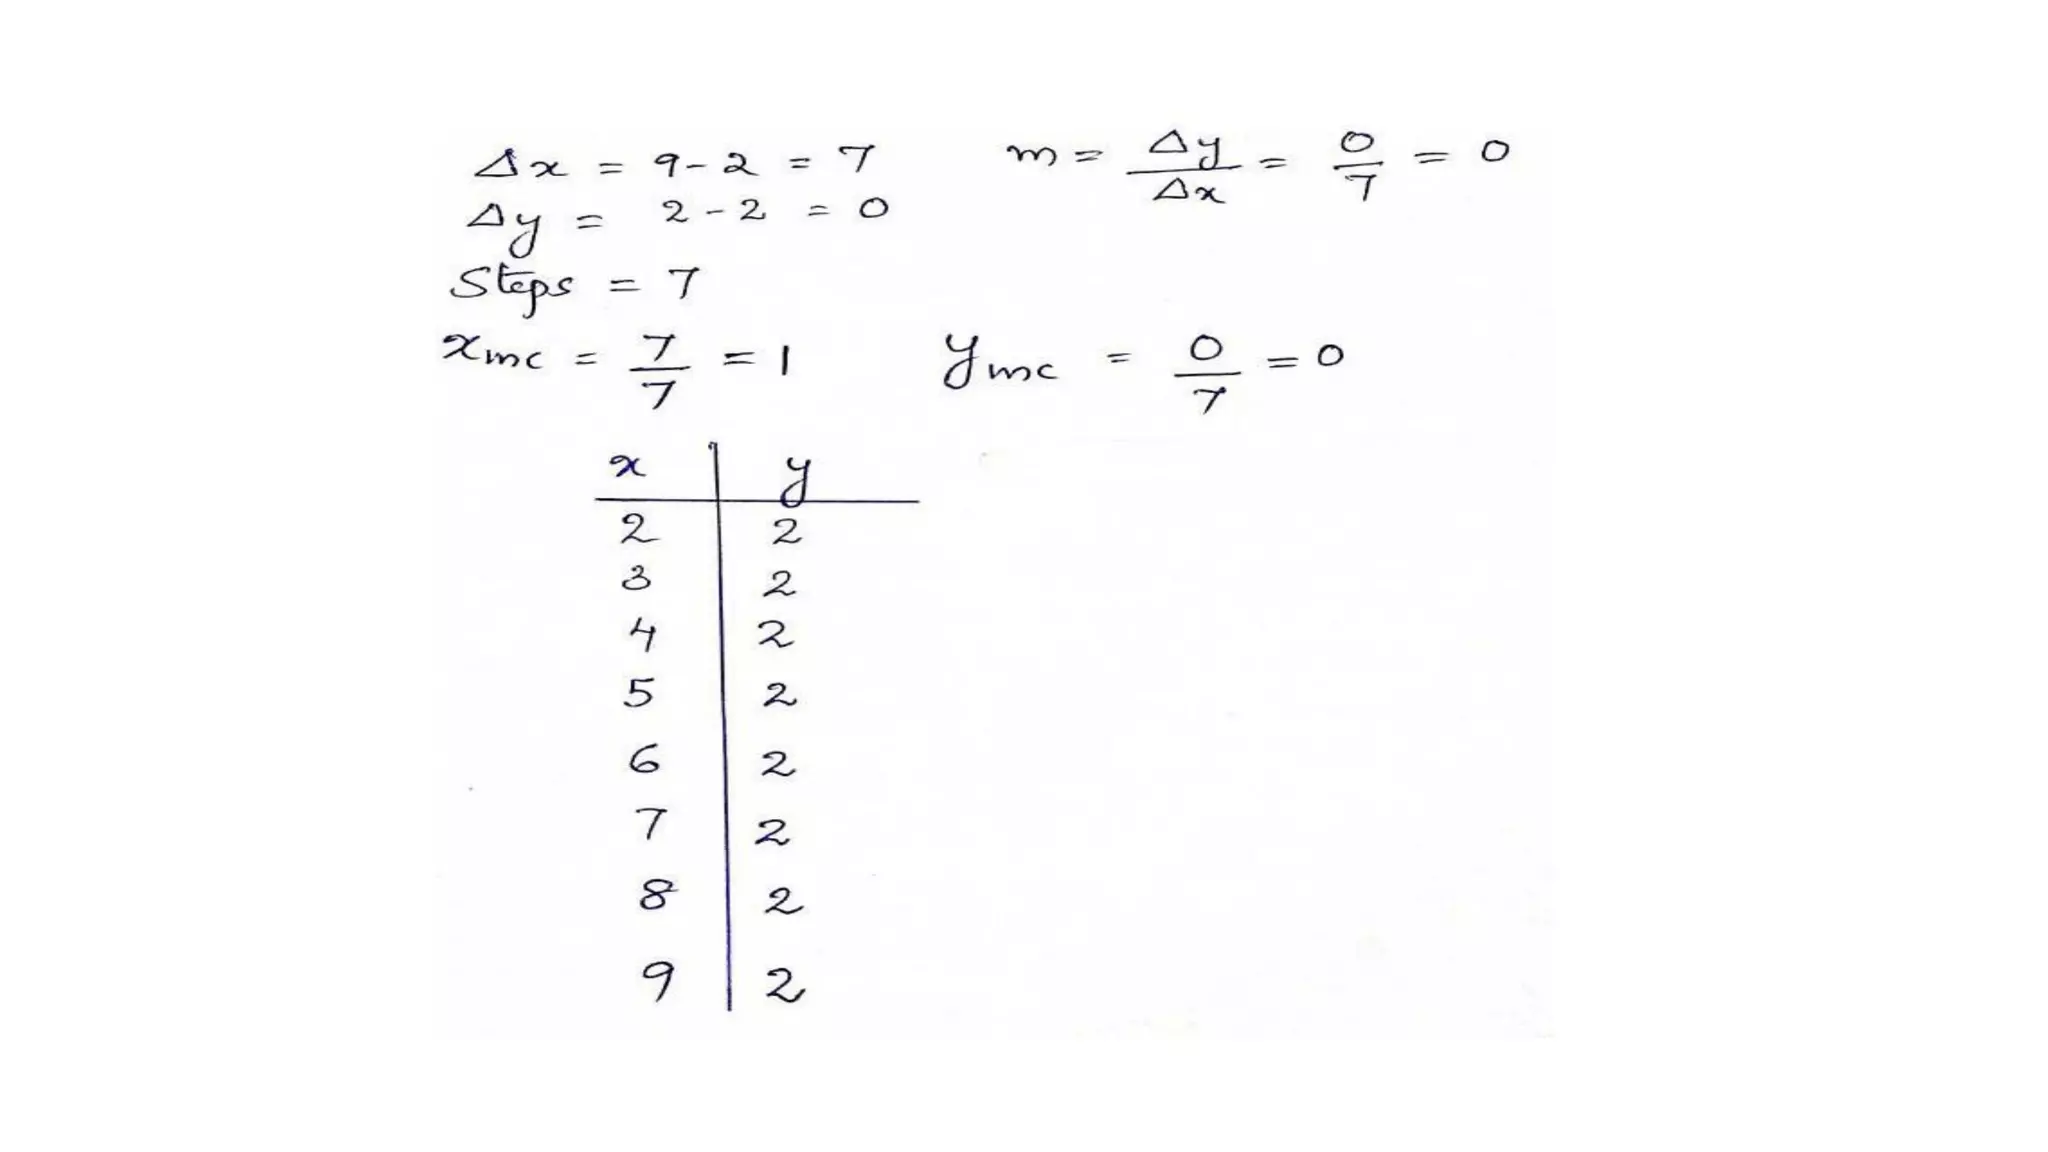 Δx = 9-2 = 7    m = Δy/Δx = 0/7 = 0
Δy = 2-2 = 0
Steps = 7
xinc = 7/7 = 1    yinc = 0/7 = 0
x | y
2 | 2
3 | 2
4 | 2
5 | 2
6 | 2
7 | 2
8 | 2
9 | 2